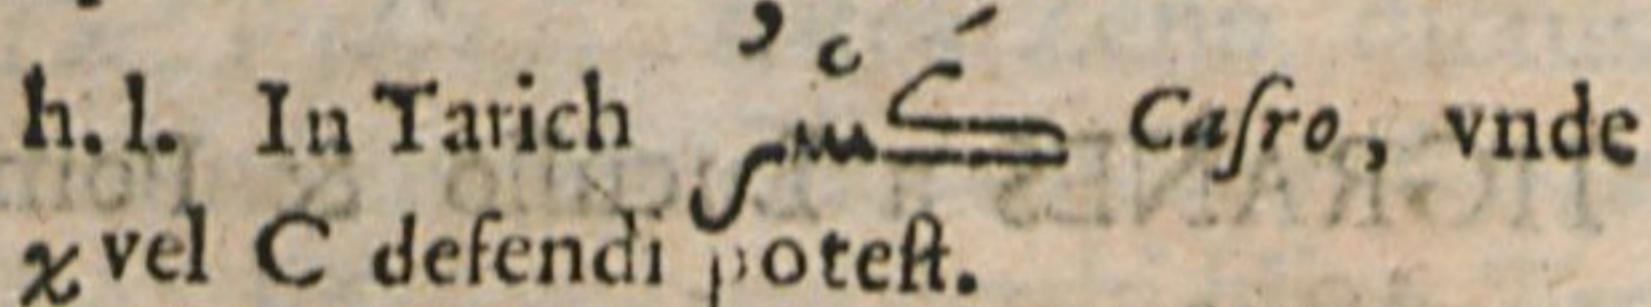 h. l. In Tarich كَسْرُ Caſro, vnde
χ vel C defendi poteſt.